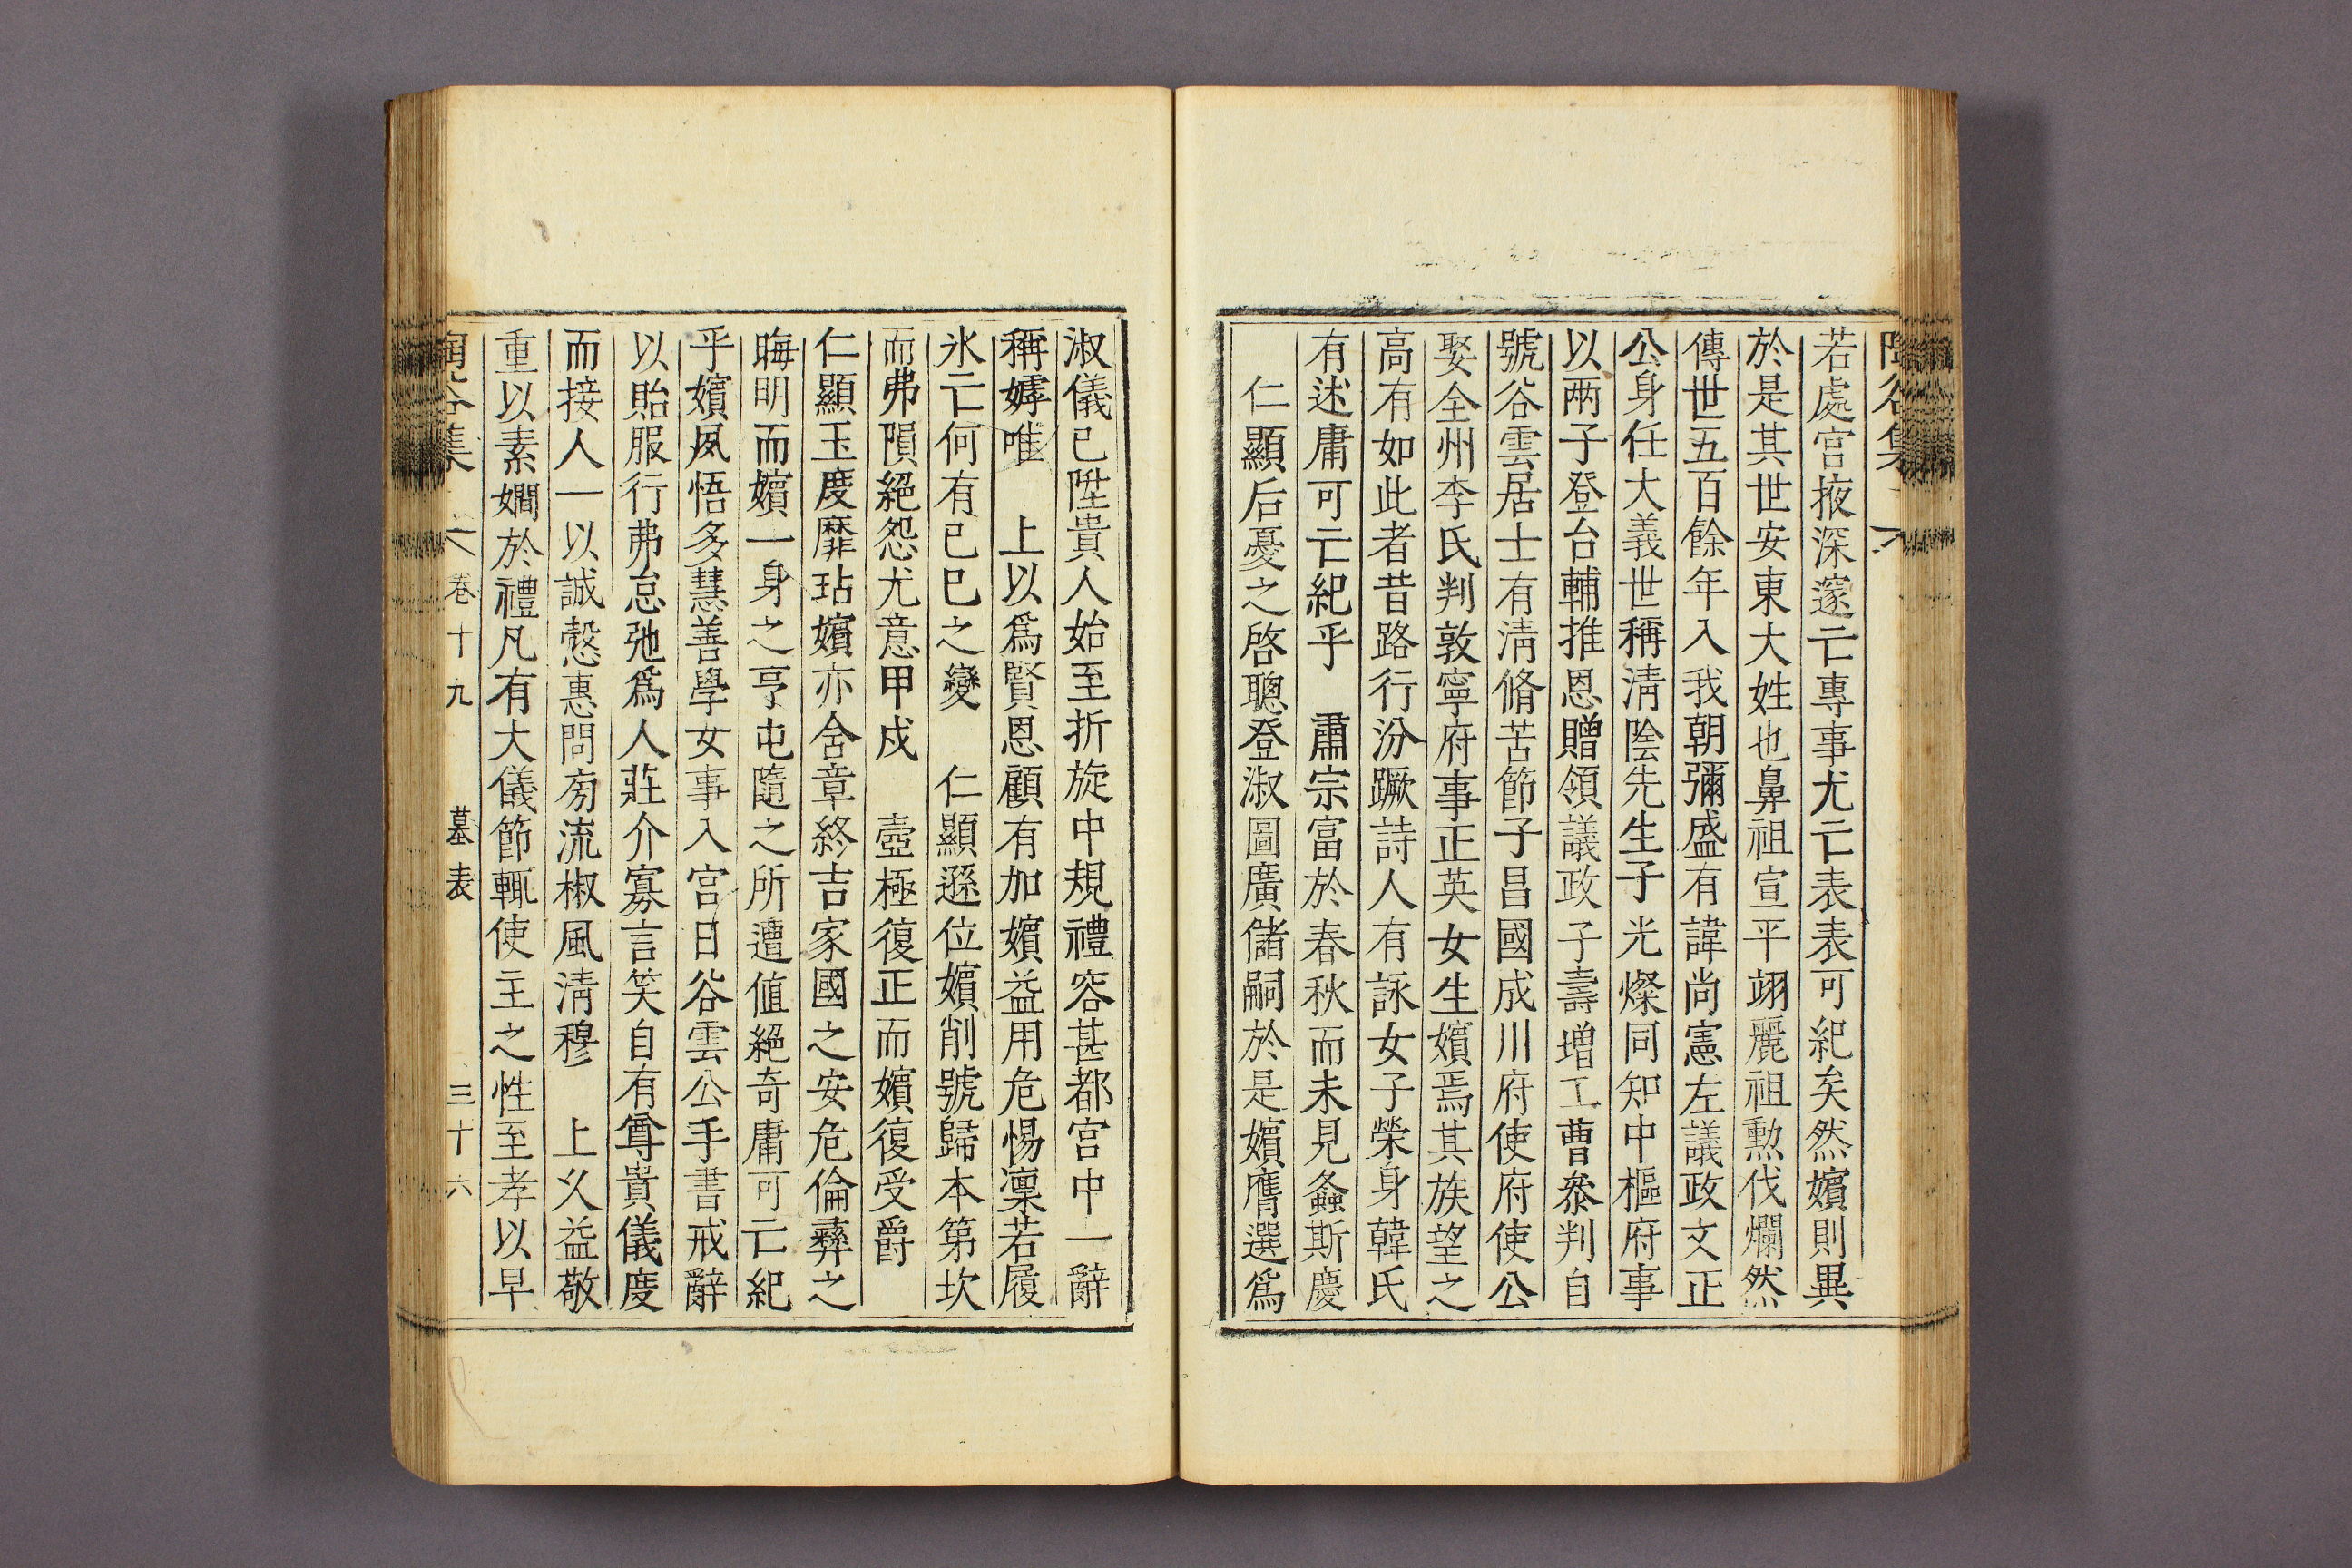 若處宮掖深邃亡專事尤亡表表可紀矣然嬪則異
於是其世安東大姓也鼻祖宣平翊麗祖勳伐爛然
傳世五百餘年入我朝彌盛有諱尚憲左議政文正
公身任大義世稱淸陰先生子光燦同知中樞府事
以兩子登台輔推恩贈領議政子壽增工曹叅判自
號谷雲居士有淸脩苦節子昌國成川府使府使公
娶全州李氏判敦寧府事正英女生嬪焉其族望之
高有如此者昔路行汾蹶詩人有詠女子榮身韓氏
有述庸可亡紀乎　肅宗富於春秋而未見螽斯慶
仁顯后憂之啓聰登淑圖廣儲嗣於是嬪膺選爲
淑儀已陞貴人始至折旋中規禮容甚都宮中一辭
稱嫭唯　上以爲賢恩顧有加嬪益用危惕凜若履
氷亡何有己巳之變　仁顯遜位嬪削號歸本第坎
而弗隕絕怨尤意甲戌　壼極復正而嬪復受爵
仁顯玉度靡玷嬪亦含章終吉家國之安危倫彝之
晦明而嬪一身之亨屯隨之所遭値絕奇庸可亡紀
乎嬪夙悟多慧善學女事入宮日谷雲公手書戒辭
以貽服行弗怠弛爲人莊介寡言笑自有尊貴儀度
而接人一以誠慤惠問旁流椒風淸穆　上久益敬
重以素嫺於禮凡有大儀節輒使主之性至孝以早
陶谷集　卷十九　墓表　三十六